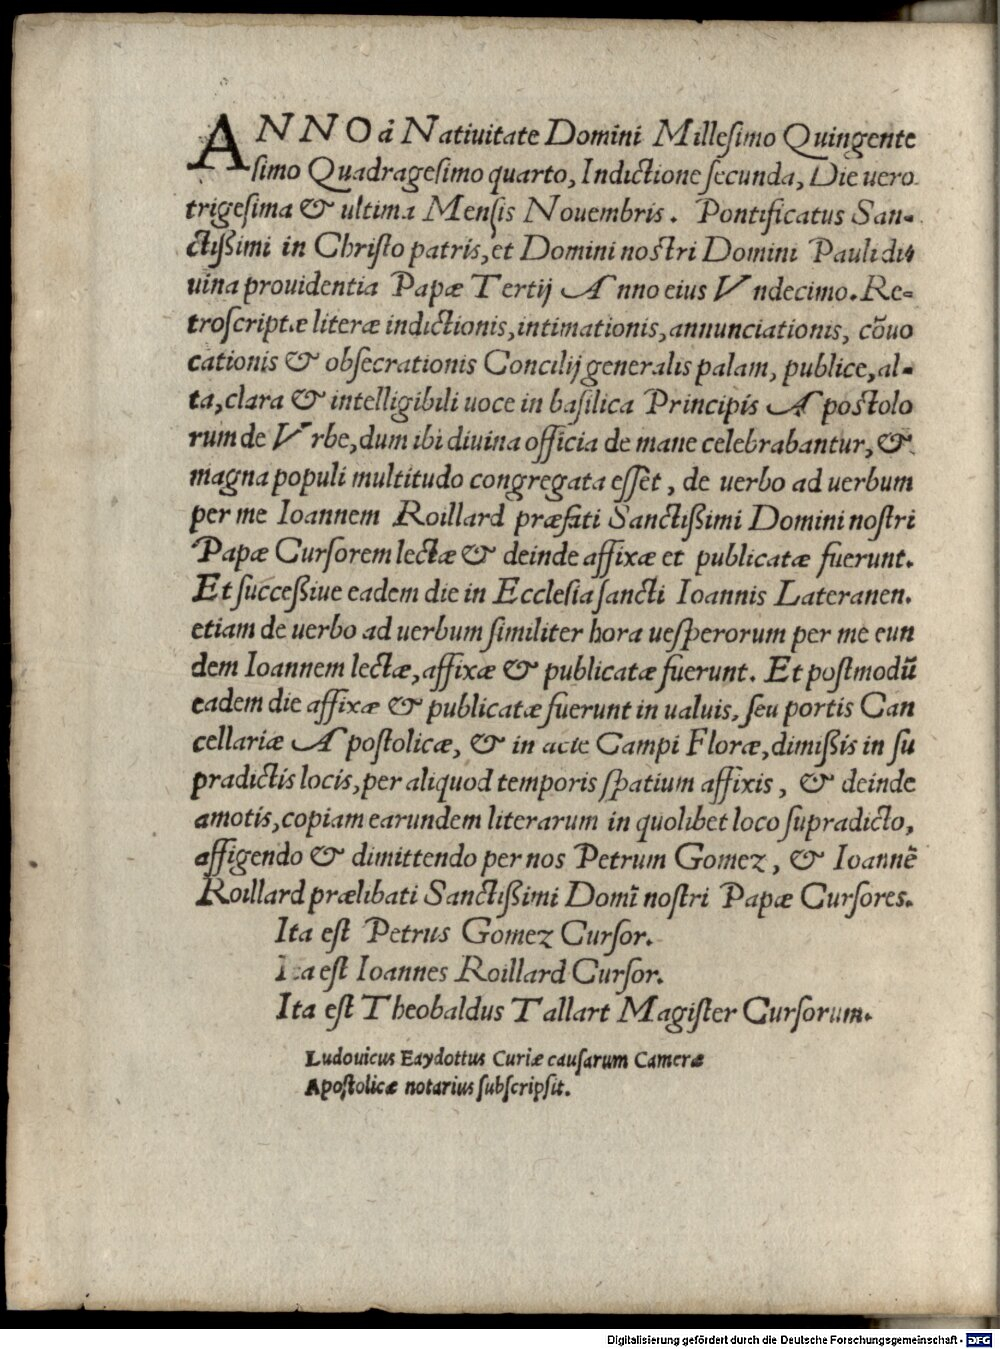 ANNO á Natiuitate Domini Millesimo Quingente
simo Quadragesimo quarto, Indictione secunda, Die uero
trigesima & ultima Mensis Nouembris. Pontificatus San-
ctißimi in Christo patris, et Domini nostri Domini Pauli di-
uina prouidentia Papæ Tertij Anno eius Vndecimo. Re-
troscriptæ literæ indictionis, intimationis, annunciationis, cōuo
cationis & obsecrationis Concilij generalis palam, publice, al-
ta, clara & intelligibili uoce in basilica Principis Apostolo
rum de Vrbe, dum ibi diuina officia de mane celebrabantur, &
magna populi multitudo congregata esset, de uerbo ad uerbum
per me Ioannem Roillard præfati Sanctißimi Domini nostri
Papæ Cursorem lectæ & deinde affixæ et publicatæ fuerunt.
Et succeßiue eadem die in Ecclesia sancti Ioannis Lateranen.
etiam de uerbo ad uerbum similiter hora uesperorum per me eun
dem Ioannem lectæ, affixæ & publicatæ fuerunt. Et postmodū
eadem die affixæ & publicatæ fuerunt in ualuis, seu portis Can
cellariæ Apostolicæ, & in acie Campi Floræ, dimißis in su
pradictis locis, per aliquod temporis spatium affixis, & deinde
amotis, copiam earundem literarum in quolibet loco supradicto,
affigendo & dimittendo per nos Petrum Gomez, & Ioannē
Roillard prælibati Sanctißimi Domī nostri Papæ Cursores.
Ita est Petrus Gomez Cursor.
Ita est Ioannes Roillard Cursor.
Ita est Theobaldus Tallart Magister Cursorum.
Ludouicus Eaydottus Curiæ causarum Cameræ
Apostolicæ notarius subscripsit.
Digitalisierung gefördert durch die Deutsche Forschungsgemeinschaft - DFG